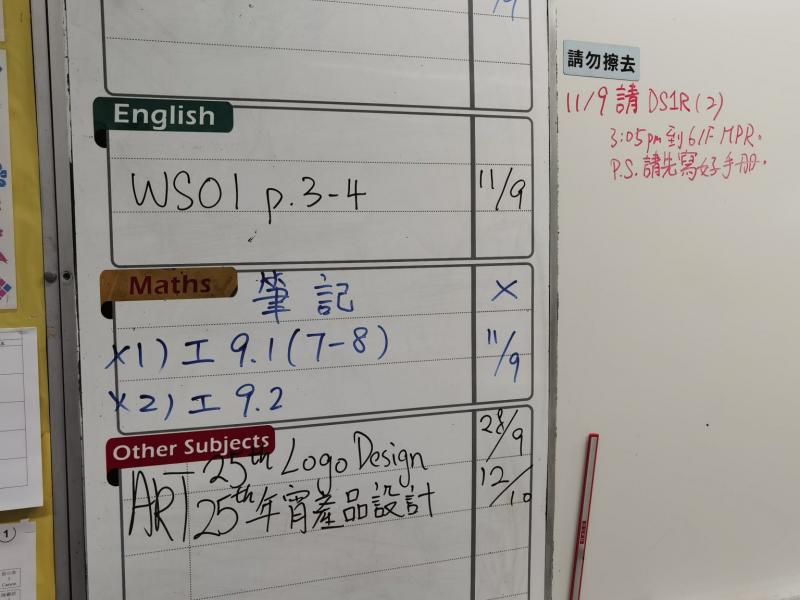 English
WS01 p.3-4 11/9
Maths
筆記 X
X1) 工 9.1 (7-8) 11/9
X2) 工 9.2
Other Subjects
ART 25th Logo Design 28/9
25th年宵產品設計 12/10
請勿擦去
11/9 請 DS1R (2)
3:05pm 到 6/F MPR。
P.S. 請先寫好手冊。